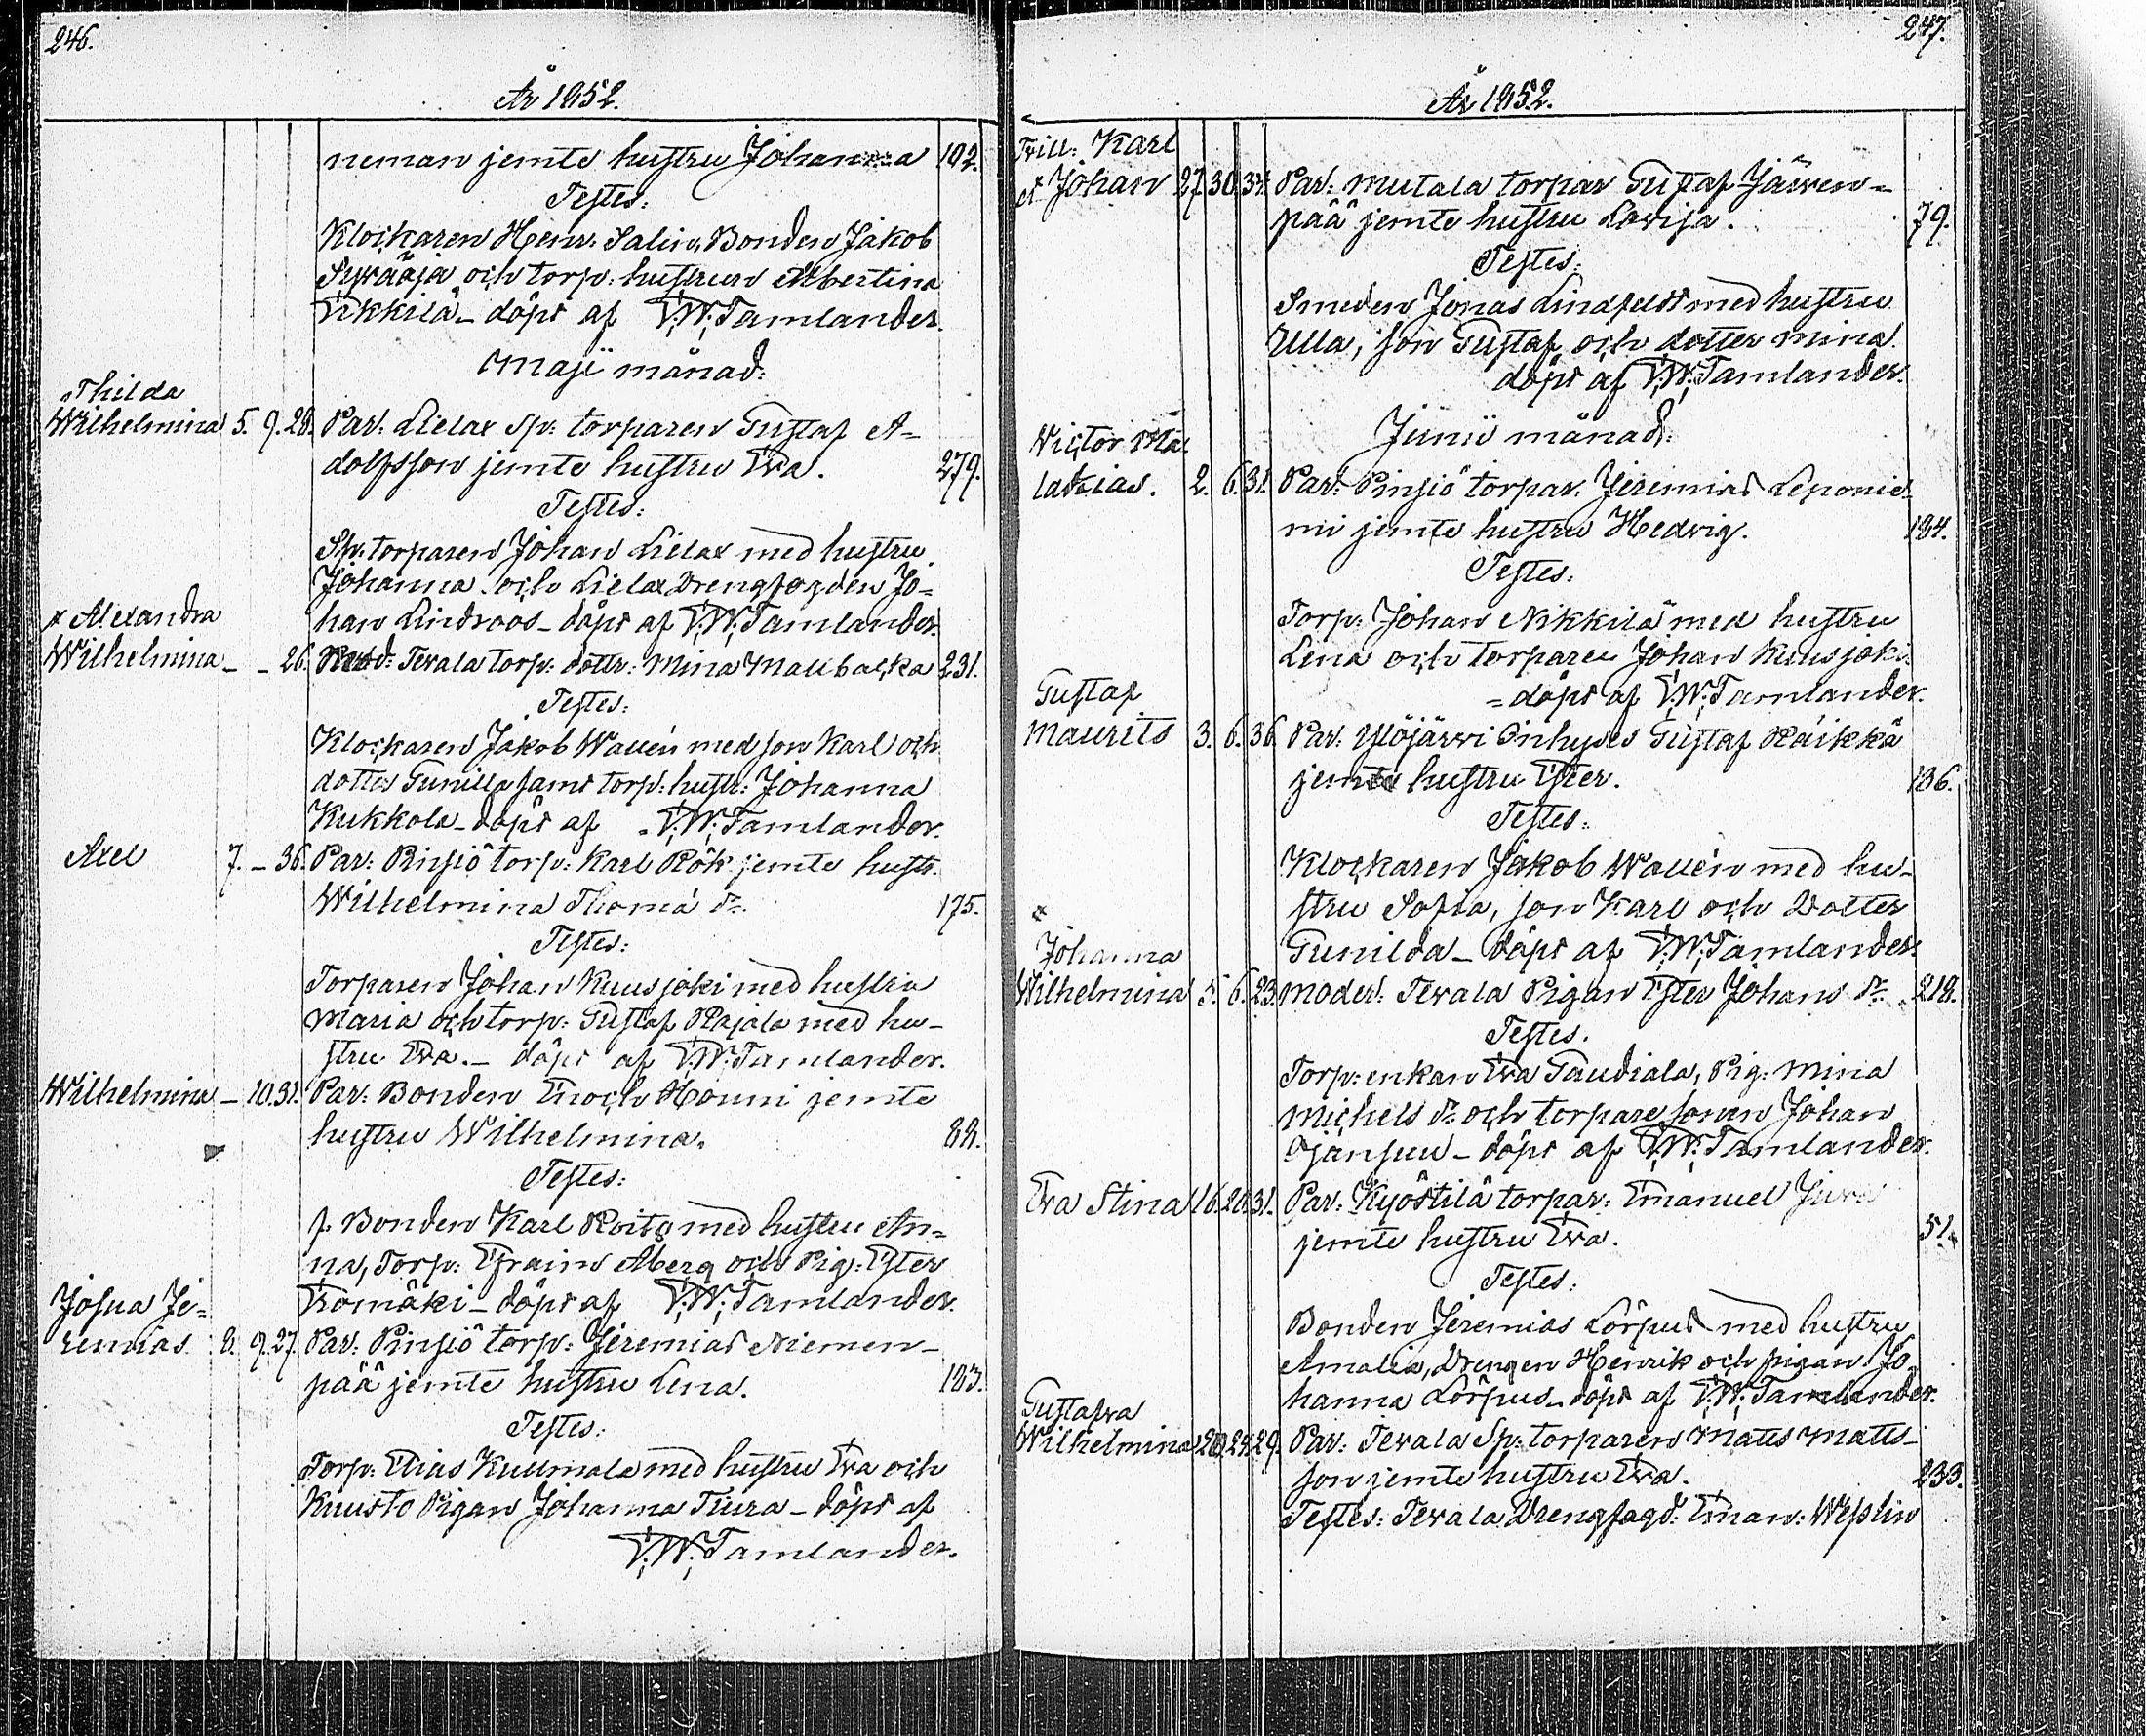 246.
År 1852.
neman jemte hustru Johanna 192.
Testes:
Klockaren Henr: Salin, Bonden Jakob
Sywäoja och torp: hustrun Albertina
Erkkilä _ döpt af E:W: Tamlander.
Maji månad:
Thilda
Wilhelmina 5. 9. 28. Par: Lielax Sp: torparen Gustaf A=
dolfsson jemte hustru Eva. 279.
Testes:
Sp: torparen Johan Lielax med hustru
Johanna och Lielax Drengfogden Jo=
han Lindroos _ döpt af E:W: Tamlander.
x Alexandra
Wilhelmina _ _ 26. Mod: Tevala torp: dottr: Mina Mallbacka 231.
Testes:
Klockaren Jakob Wallén med son Karl och
dotter Gunilla samt torp: hustr: Johanna
Kukkola _ döpt af E:W: Tamlander.
Axel 7. _ 36. Par: Pinsiö torp: Karl Rök jemte hustr.
Wilhelmina Thomä dr. 175.
Testes:
Torparen Johan Kuusjoki med hustru
Maria och torp: Gustaf Rajala med hu_
stru Eva. _ döpt af E:W: Tamlander.
Wilhelmina _ 10. 31. Par: Bonden Enoch Honni jemte
hustru Wilhelmina. 88.
Testes:
f. Bonden Karl Roito med hustru An=
na, Torp: Efraim Åberg och Pig: Ester
Tromäki _ döpt af E:W: Tamlander.
Josua Je=
remias 8. 9. 27. Par: Pinsiö torp: Jeremias Niemen_
pää jemte hustru Lena. 183.
Testes:
Torp: Elias Kullmala med hustru Eva och
Kuusto Pigan Johanna Tiura _ döpt af
E:W: Tamlander.
247.
År 1852.
Trill: Karl
et Johan 27. 30. 37. Par: Mutala torpar Gustaf Järven=
pää jemte hustru Lovisa. 79.
Testes:
Smeden Jonas Lindfeldt med hustru
Ulla, son Gustaf och dotter Mina.
döpt af E:W: Tamlander.
Junii månad:
Victor Ma=
lakias. 2. 6. 31. Par: Pinsiö torpar: Jeremias Leponie=
mi jemte hustru Hedvig. 184.
Testes:
Torp: Johan Nikkilä med hustru
Lena och torparen Johan Kuusjoki.
= döpt af E:W: Tamlander.
Gustaf
Maurits 3. 6. 36. Par: Ylöjärvi Inhyses Gustaf Räikkä
jemte hustru Ester. 136.
Testes:
Klockaren Jakob Wallén med hu_
stru Sofia, son Karl och Dotter
Gunilda _ döpt af E:W: Tamlander.
x
Johanna
Wilhelmina 5. 6. 23. Moder: Tevala Pigan Ester Johans dr. 218.
Testes.
Torp: enkan Eva Taudiala, Pig: Mina
Michels dr. och torparesonen Johan
Ojansuu _ döpt af E:W: Tamlander.
Eva Stina 16. 20. 31. Par: Kyöstilä torpar: Emanuel Juva
jemte hustru Eva. 51.
Testes:
Bonden Jeremias Lörpus med hustru
Amalia, Drengen Henrik och pigan Jo_
hanna Lörpus _ döpt af E:W: Tamlander.
Gustafva
Wilhelmina 20. 24. 29. Par: Tevala Sp: torparen Matts Matts_
son jemte hustru Eva. 233.
Testes: Tevala Drengfogd: Eman: Wesslin